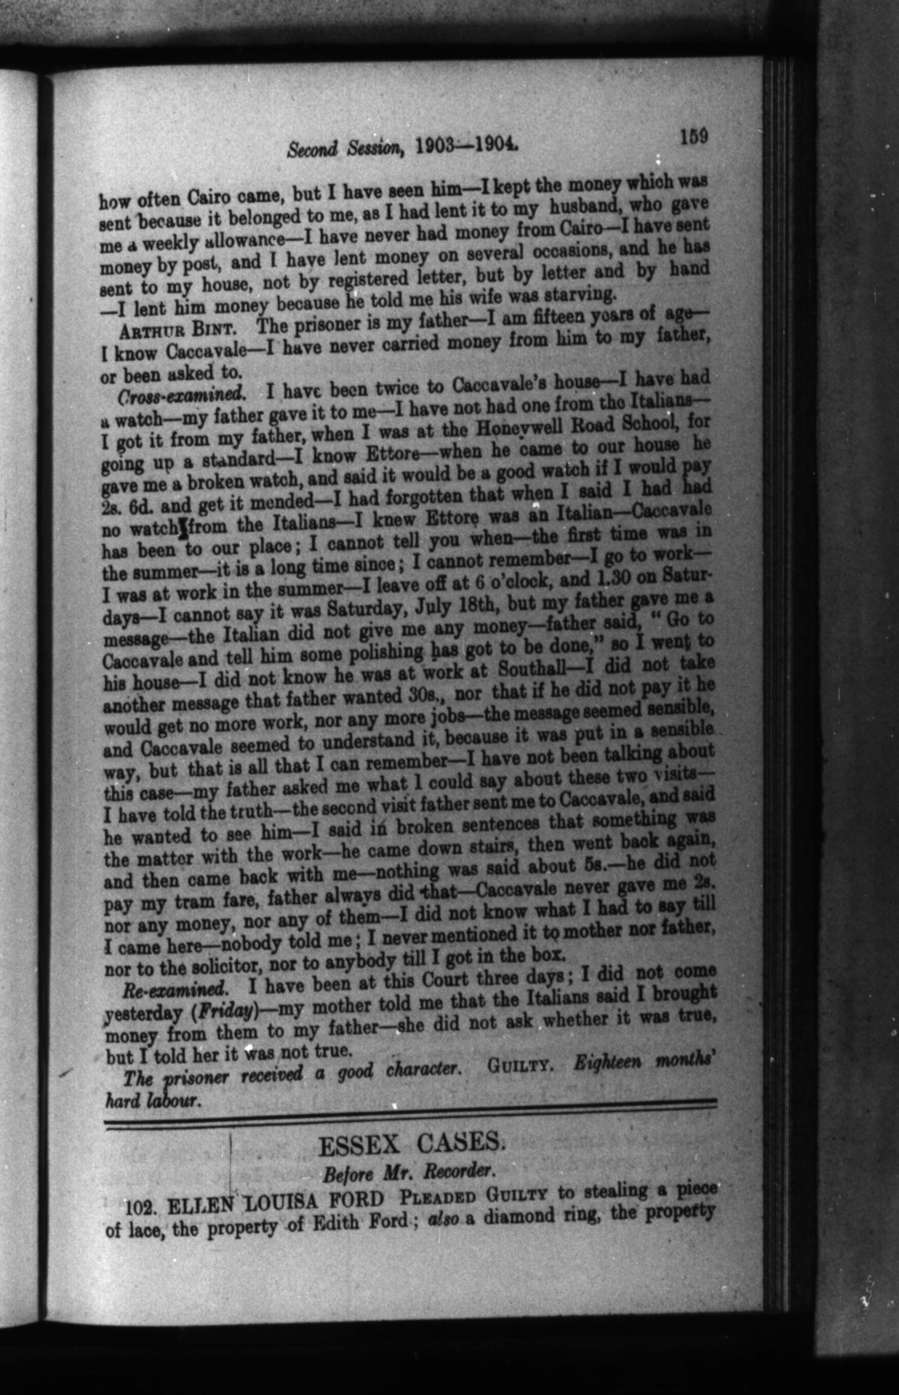 Second Session, 1903—1904. 159
how often Cairo came, but I have seen him—I kept the money which was
sent because it belonged to me, as I had lent it to my husband, who gave
me a weekly allowance—I have never had money from Cairo—I have sent
money by post, and I have lent money on several occasions, and he has
sent to my house, not by registered letter, but by letter and by hand
—I lent him money because he told me his wife was starving.
ARTHUR BINT. The prisoner is my father—I am fifteen years of age—
I know Caccavale—I have never carried money from him to my father,
or been asked to.
Cross-examined. I have been twice to Caccavale's house—I have had
a watch—my father gave it to me—I have not had one from the Italians—
I got it from my father, when I was at the Honeywell Road School, for
going up a standard—I know Ettore—when he came to our house he
gave me a broken watch, and said it would be a good watch if I would pay
2s. 6d. and get it mended—I had forgotten that when I said I had had
no watch from the Italians—I knew Ettore was an Italian—Caccavale
has been to our place; I cannot tell you when—the first time was in
the summer—it is a long time since; I cannot remember—I go to work—
I was at work in the summer—I leave off at 6 o'clock, and 1.30 on Satur-
days—I cannot say it was Saturday, July 18th, but my father gave me a
message—the Italian did not give me any money—father said, "Go to
Caccavale and tell him some polishing has got to be done," so I went to
his house—I did not know he was at work at Southall—I did not take
another message that father wanted 30s., nor that if he did not pay it he
would get no more work, nor any more jobs—the message seemed sensible,
and Caccavale seemed to understand it, because it was put in a sensible
way, but that is all that I can remember—I have not been talking about
this case—my father asked me what I could say about these two visits—
I have told the truth—the second visit father sent me to Caccavale, and said
he wanted to see him—I said in broken sentences that something was
the matter with the work—he came down stairs, then went back again,
and then came back with me—nothing was said about 5s.—he did not
pay my tram fare, father always did that—Caccavale never gave me 2s.
nor any money, nor any of them—I did not know what I had to say till
I came here—nobody told me; I never mentioned it to mother nor father,
nor to the solicitor, nor to anybody till I got in the box.
Re-examined. I have been at this Court three days; I did not come
yesterday (Friday)—my mother told me that the Italians said I brought
money from them to my father—she did not ask whether it was true,
but I told her it was not true.
The prisoner received a good character. GUILTY. Eighteen months'
hard labour.
ESSEX CASES.
Before Mr. Recorder.
102. ELLEN LOUISA FORD PLEADED GUILTY to stealing a piece
of lace, the property of Edith Ford; also a diamond ring, the property